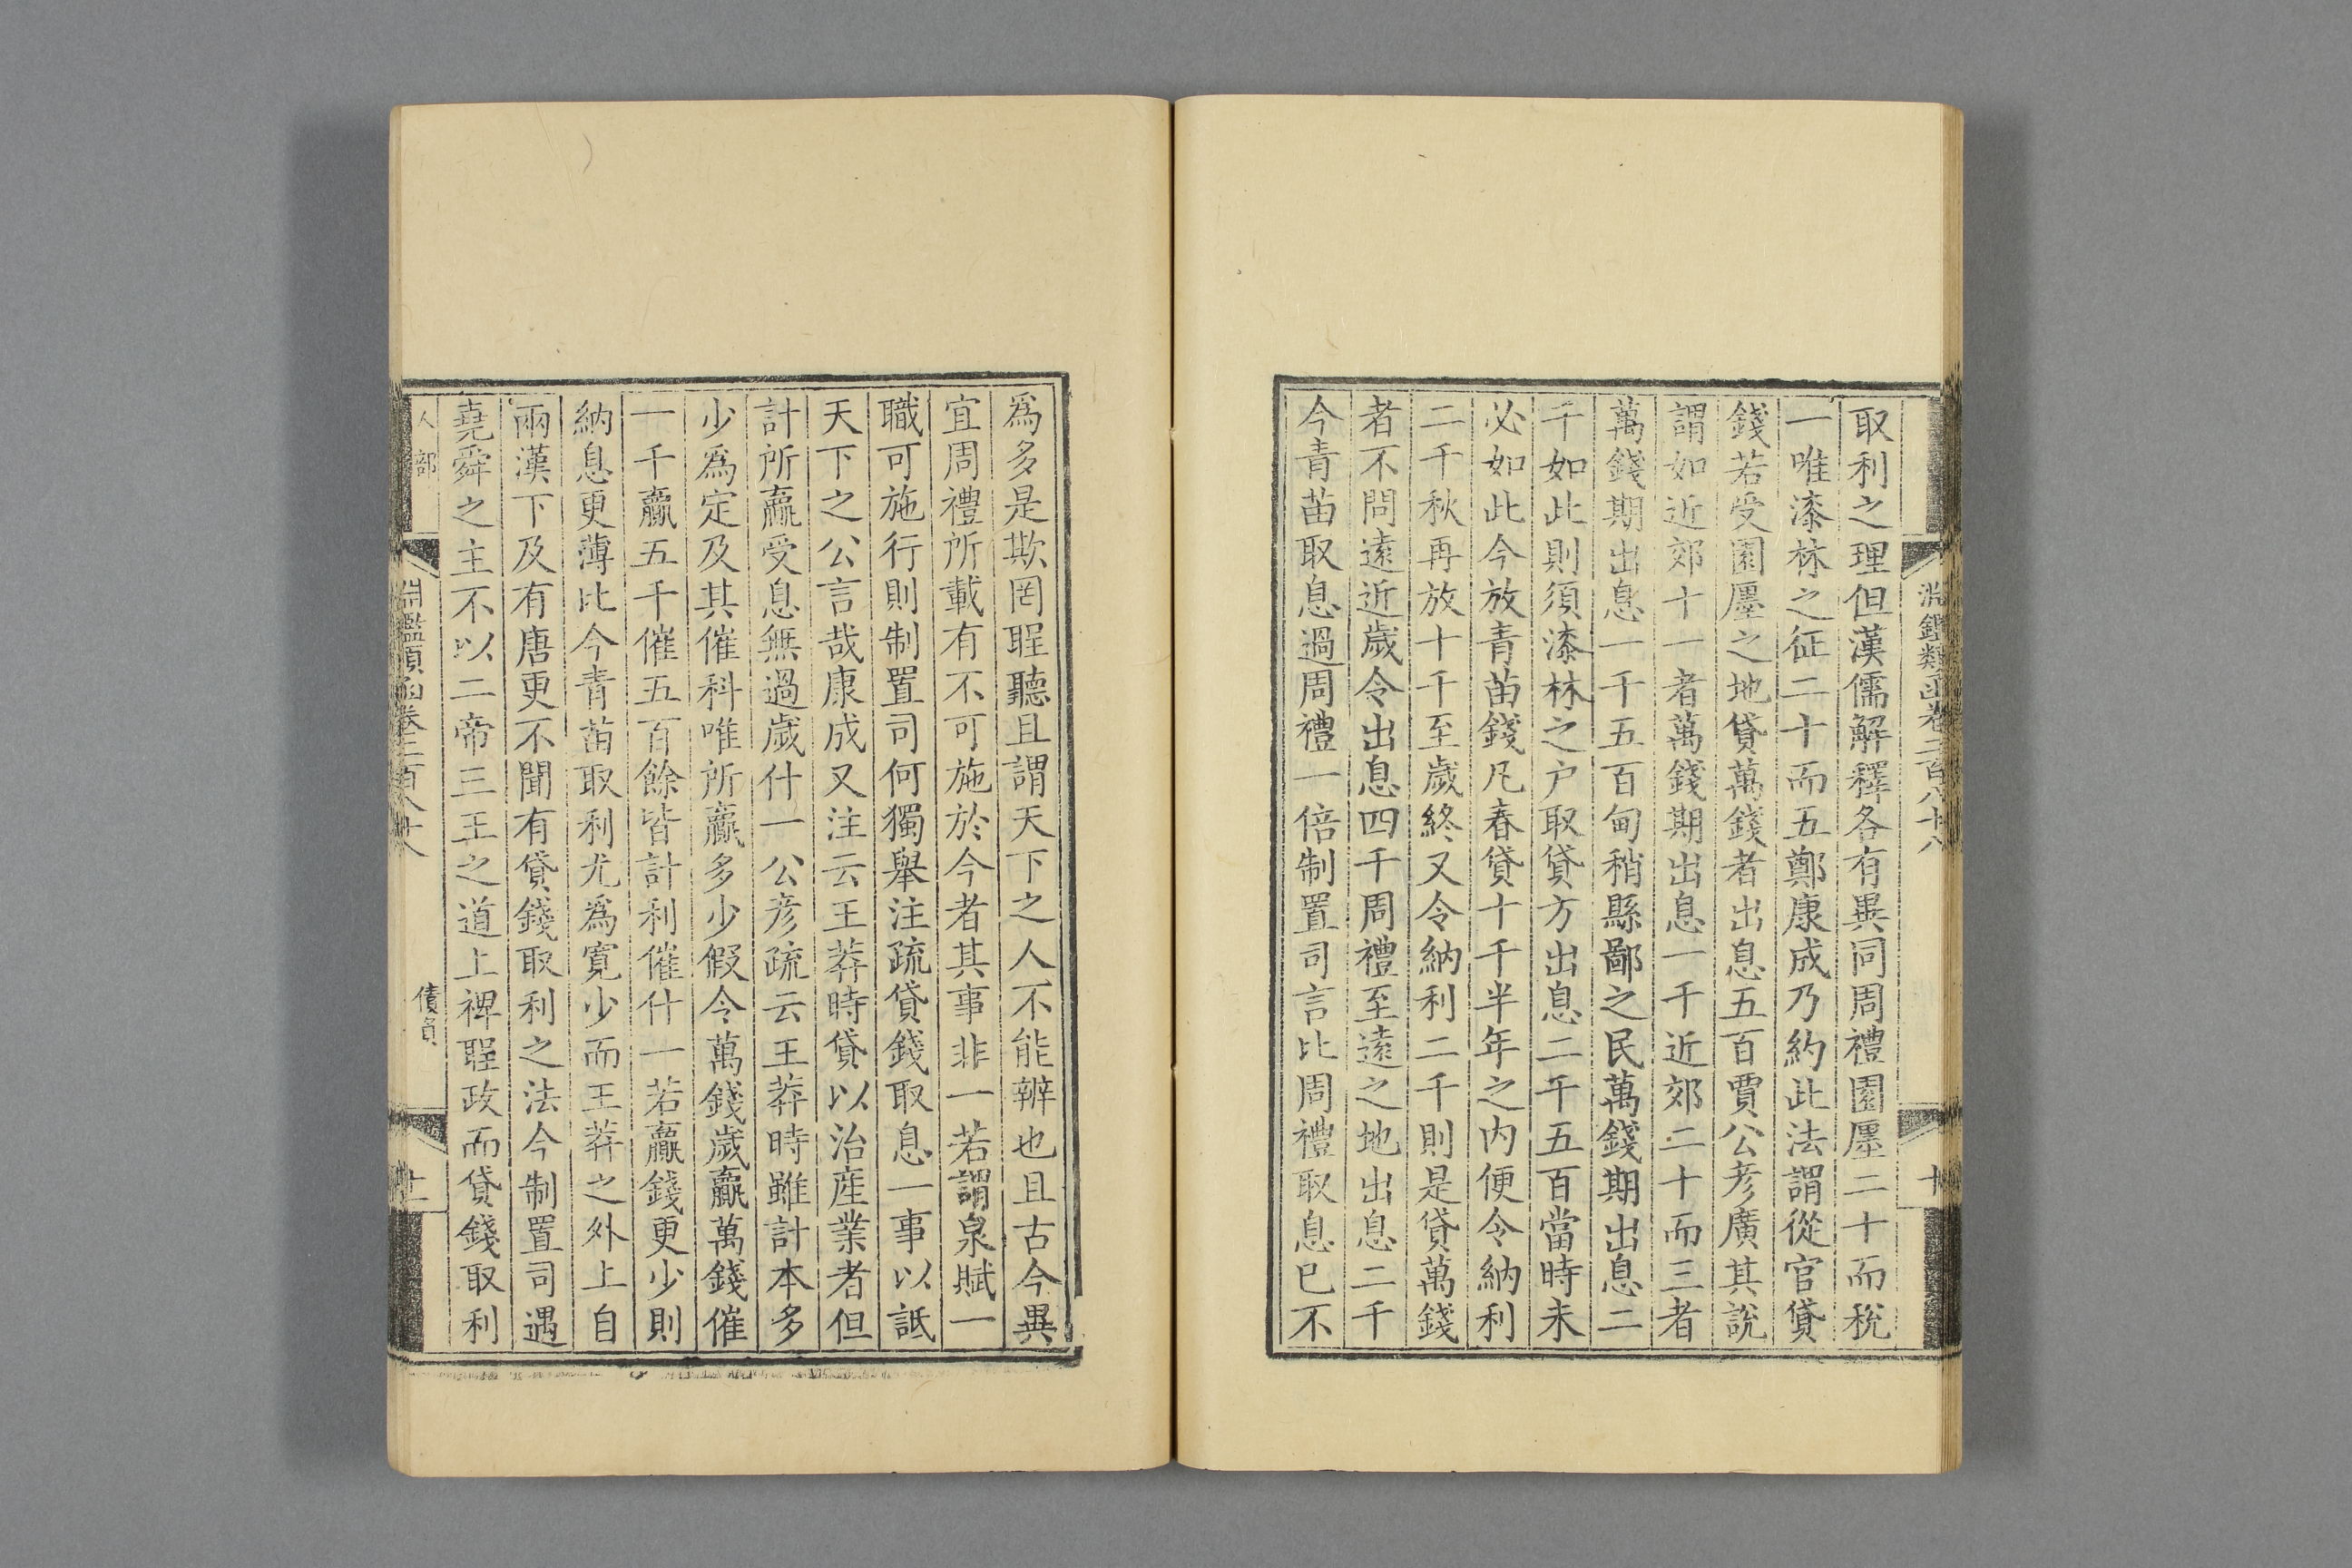 淵鑑類函卷二百八十八
十
取利之理但漢儒解釋各有異同周禮園廛二十而稅
一唯漆林之征二十而五鄭康成乃約此法謂從官貸
錢若受園廛之地貸萬錢者出息五百賈公彥廣其說
謂如近郊十一者萬錢期出息一千近郊二十而三者
萬錢期出息一千五百甸稍縣鄙之民萬錢期出息二
千如此則須漆林之户取貸方出息二千五百當時未
必如此今放青苗錢凡春貸十千半年之内便令納利
二千秋再放十千至歲終又令納利二千則是貸萬錢
者不問遠近歲令出息四千周禮至遠之地出息二千
今青苗取息過周禮一倍制置司言比周禮取息已不
爲多是欺罔聖聽且謂天下之人不能辨也且古今異
宜周禮所載有不可施於今者其事非一若謂泉賦一
職可施行則制置司何獨舉注疏貸錢取息一事以詆
天下之公言哉康成又注云王莽時貸以治産業者但
計所贏受息無過歲什一公彥疏云王莽時雖計本多
少爲定及其催科唯所贏多少假令萬錢歲贏萬錢催
一千贏五千催五百餘皆計利催什一若贏錢更少則
納息更薄比今青苗取利尤爲寛少而王莽之外上自
兩漢下及有唐更不聞有貸錢取利之法今制置司遇
堯舜之主不以二帝三王之道上裨聖政而貸錢取利
人部
淵鑑類函卷二百八十八
債負
十一